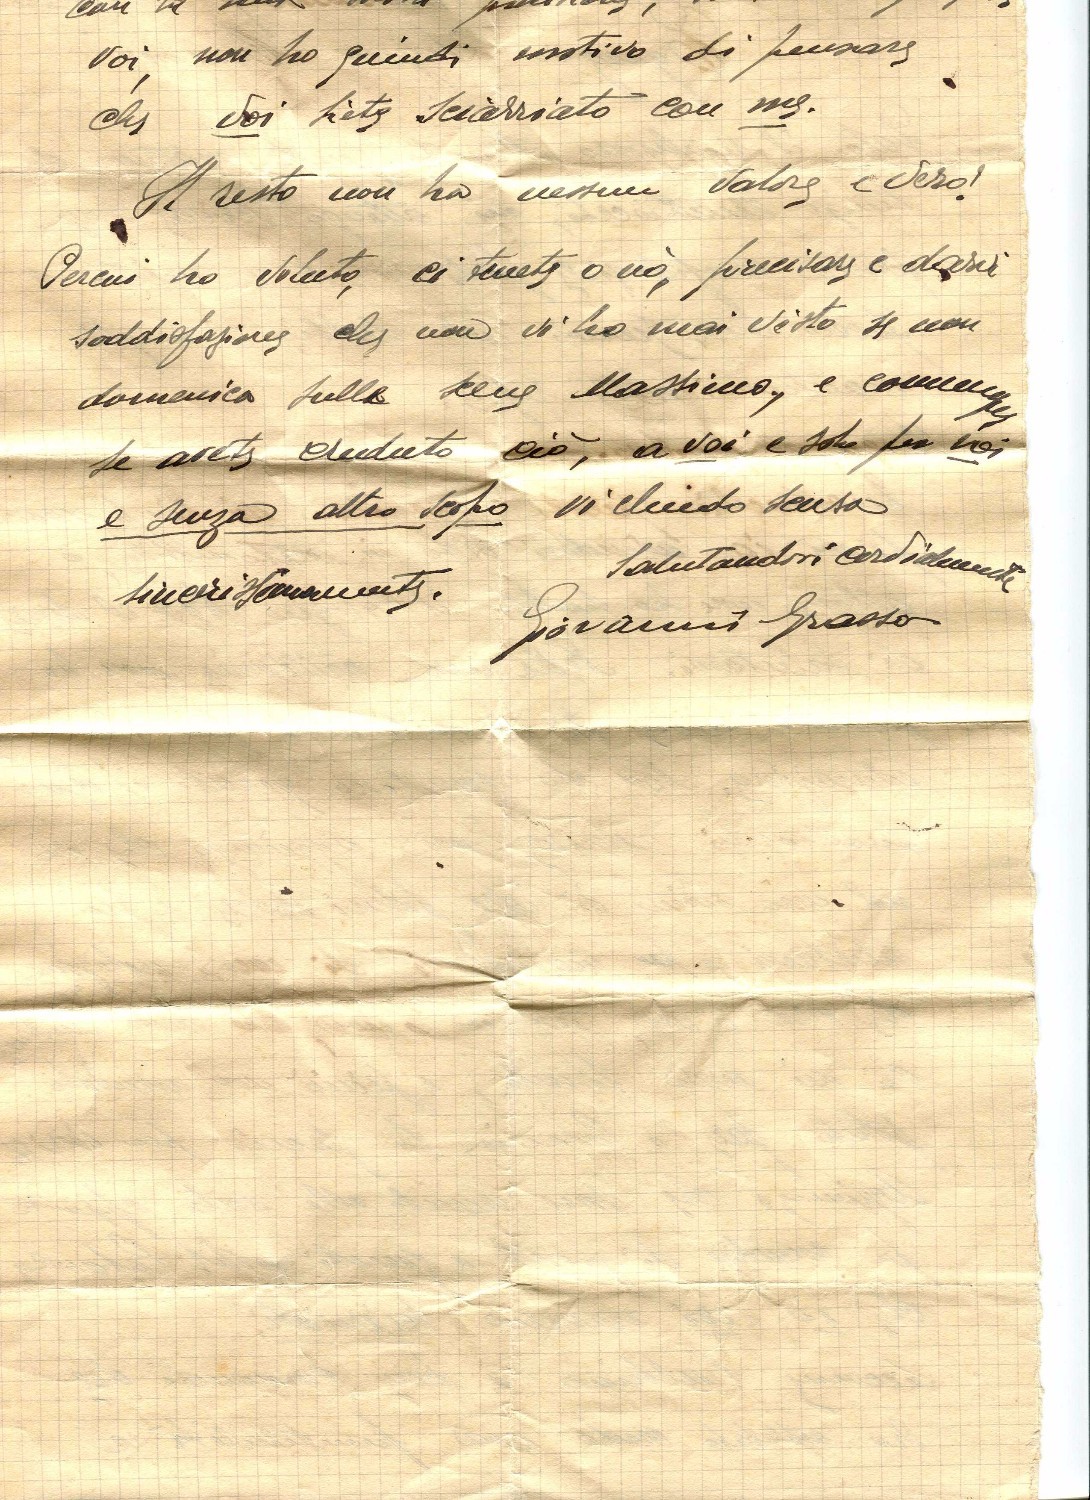 con la
voi, non ho quindi motivo di pensare
che voi siete sciarriato con me.
Il resto non ha nessun valore e vero!
Percui ho voluto, ci tenete o nò, precisare e darvi
soddisfazione che non vi ho mai visto se non
domenica sulle scene Massimo, e comunque
se avete creduto ciò, a voi e solo per voi
e senza altro scopo vi chiedo scusa
Salutandovi cordialmente
sincerissimamente.
Giovanni Grasso